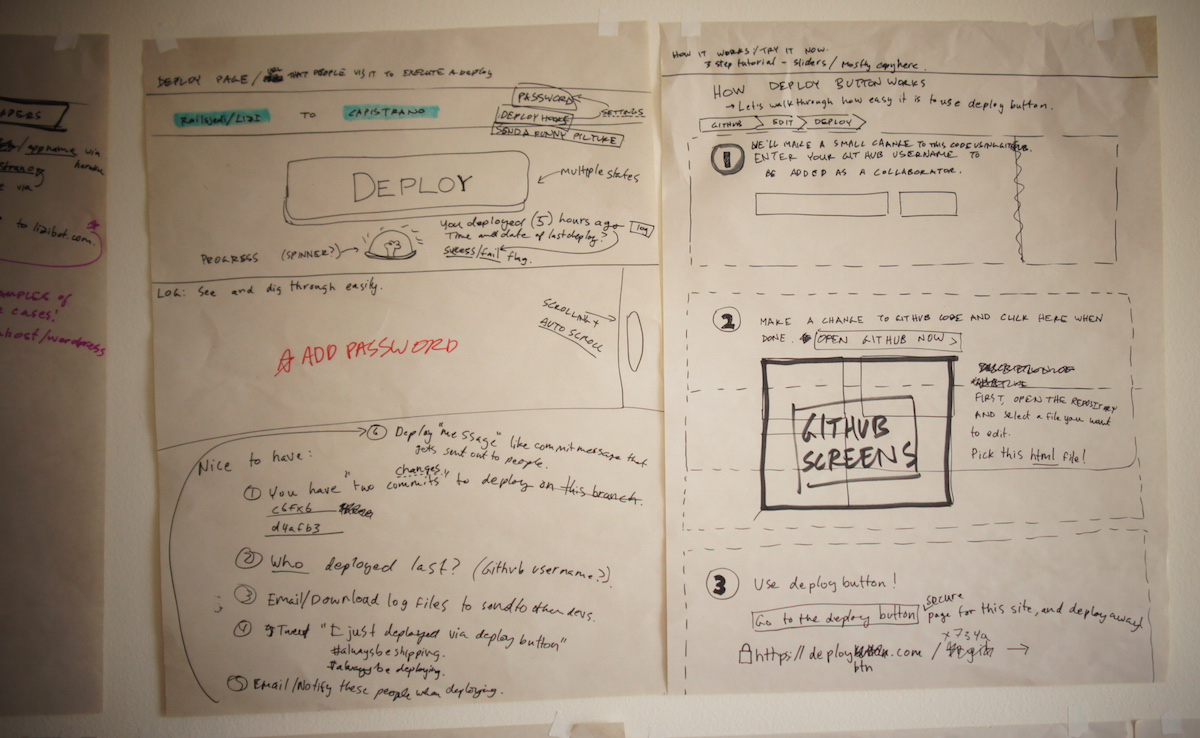 via
to lizibot.com.
cases!
DEPLOY PAGE/ THAT PEOPLE VISIT TO EXECUTE A DEPLOY
TO CAPISTRANO
PASSWORD
DEPLOY HOOKS
SEND A FUNNY PICTURE
SETTINGS
DEPLOY
MULTIPLE STATES
You deployed (5) hours ago log
Time and date of last deploy?
success/fail flag.
PROGRESS (SPINNER?)
LOG: See and dig through easily.
SCROLLING +
AUTO SCROLL
ADD PASSWORD
Nice to have:
6 Deploy "message" like commit message that
gets sent out to people.
changes
1 You have "two commits" to deploy on this branch.
c6fxb
d4afb3
2 Who deployed last? (Github username?).
3 Email/Download log files to send to other devs.
4 Tweet "I just deployed via deploy button"
#alwaysbeshipping.
#alwaysbe deploying.
5 Email/Notify these people when deploying.
HOW IT WORKS/TRY IT NOW.
3 step tutorial - Sliders/ Mostly copy here.
HOW DEPLOY BUTTON WORKS
→ Let's walkthrough how easy it is to use deploy button.
GITHUB EDIT DEPLOY
1 WE'LL MAKE A SMALL CHANGE TO THIS CODE USING GITHUB.
ENTER YOUR GITHUB USERNAME TO
BE ADDED AS A COLLABORATOR.
2 MAKE A CHANGE TO GITHUB CODE AND CLICK HERE WHEN
DONE. OPEN GITHUB NOW >
GITHUB
SCREENS
FIRST, OPEN THE REPOSITORY
AND select a file you want
to edit.
Pick this html file!
3 Use deploy button!
secure
Go to the deploy button page for this site, and deploy away!
x734g
https://deploy .com / →
btn